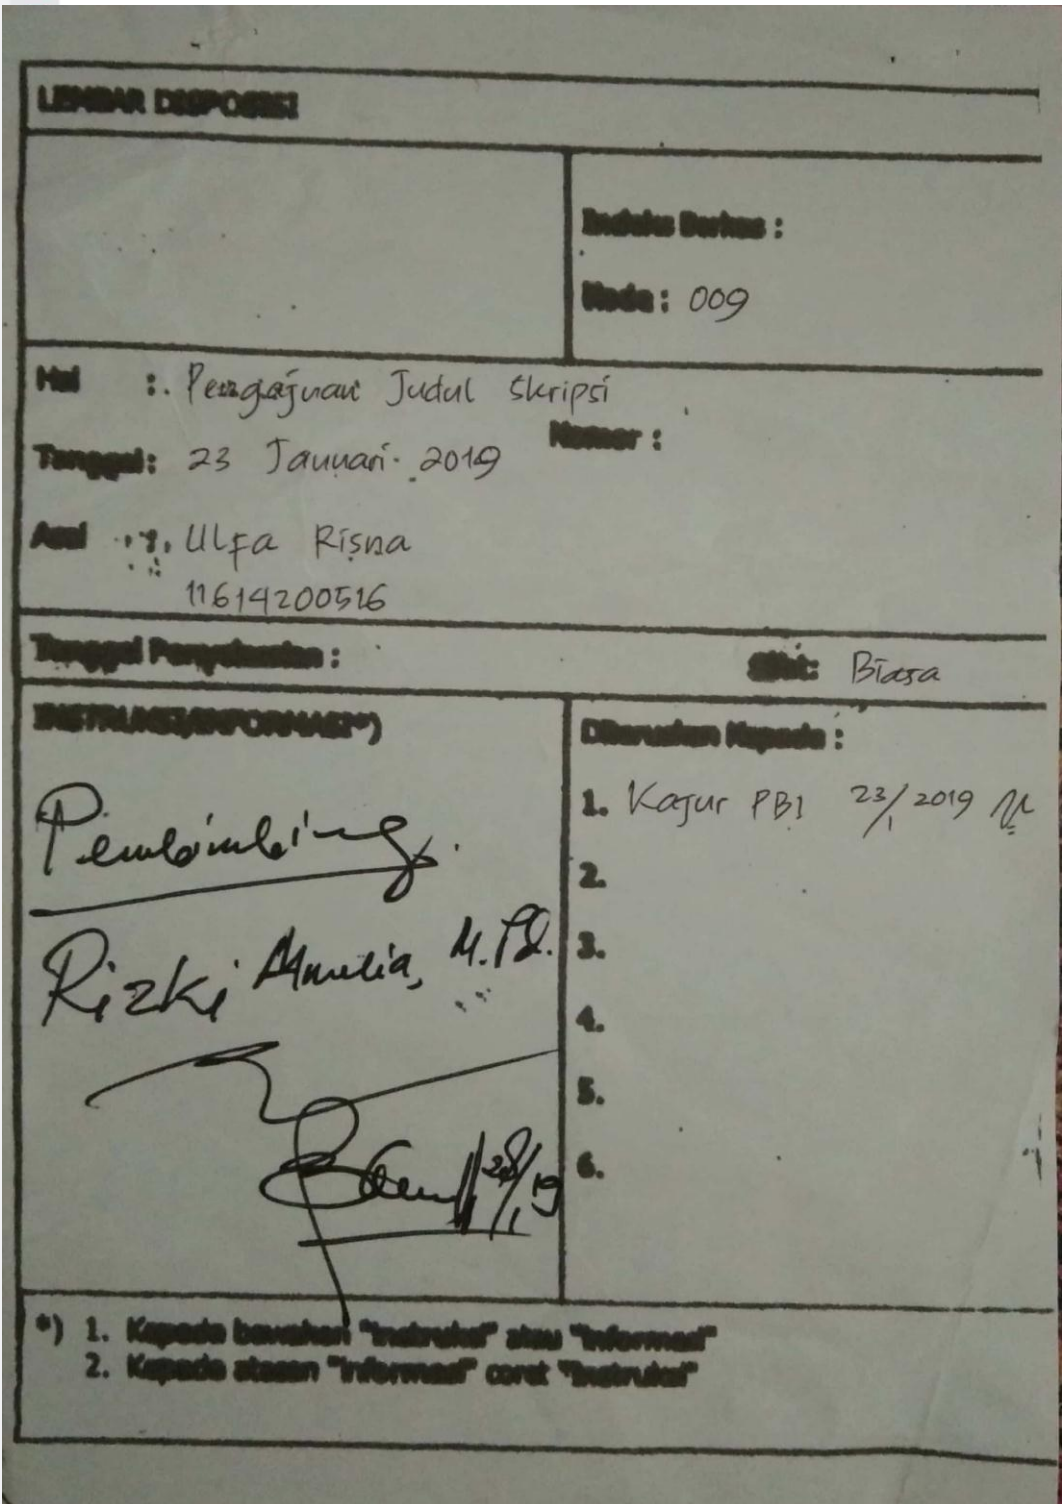 LEMBAR DISPOSISI
Indeks Berkas :
Kode : 009
Hal : Pengajuan Judul Skripsi
Nomor :
Tanggal : 23 Januari 2019
Asal : Ulfa Risna
11614200516
Tanggal Penyelesaian :
Sifat : Biasa
INSTRUKSI/INFORMASI*)
Pembimbing
Rizki Amelia, M.Pd.
28/1/19
Diteruskan Kepada :
1. Kajur PBI 23/1 2019
2.
3.
4.
5.
6.
*) 1. Kepada bawahan "Instruksi" atau "Informasi"
2. Kepada atasan "Informasi" coret "Instruksi"